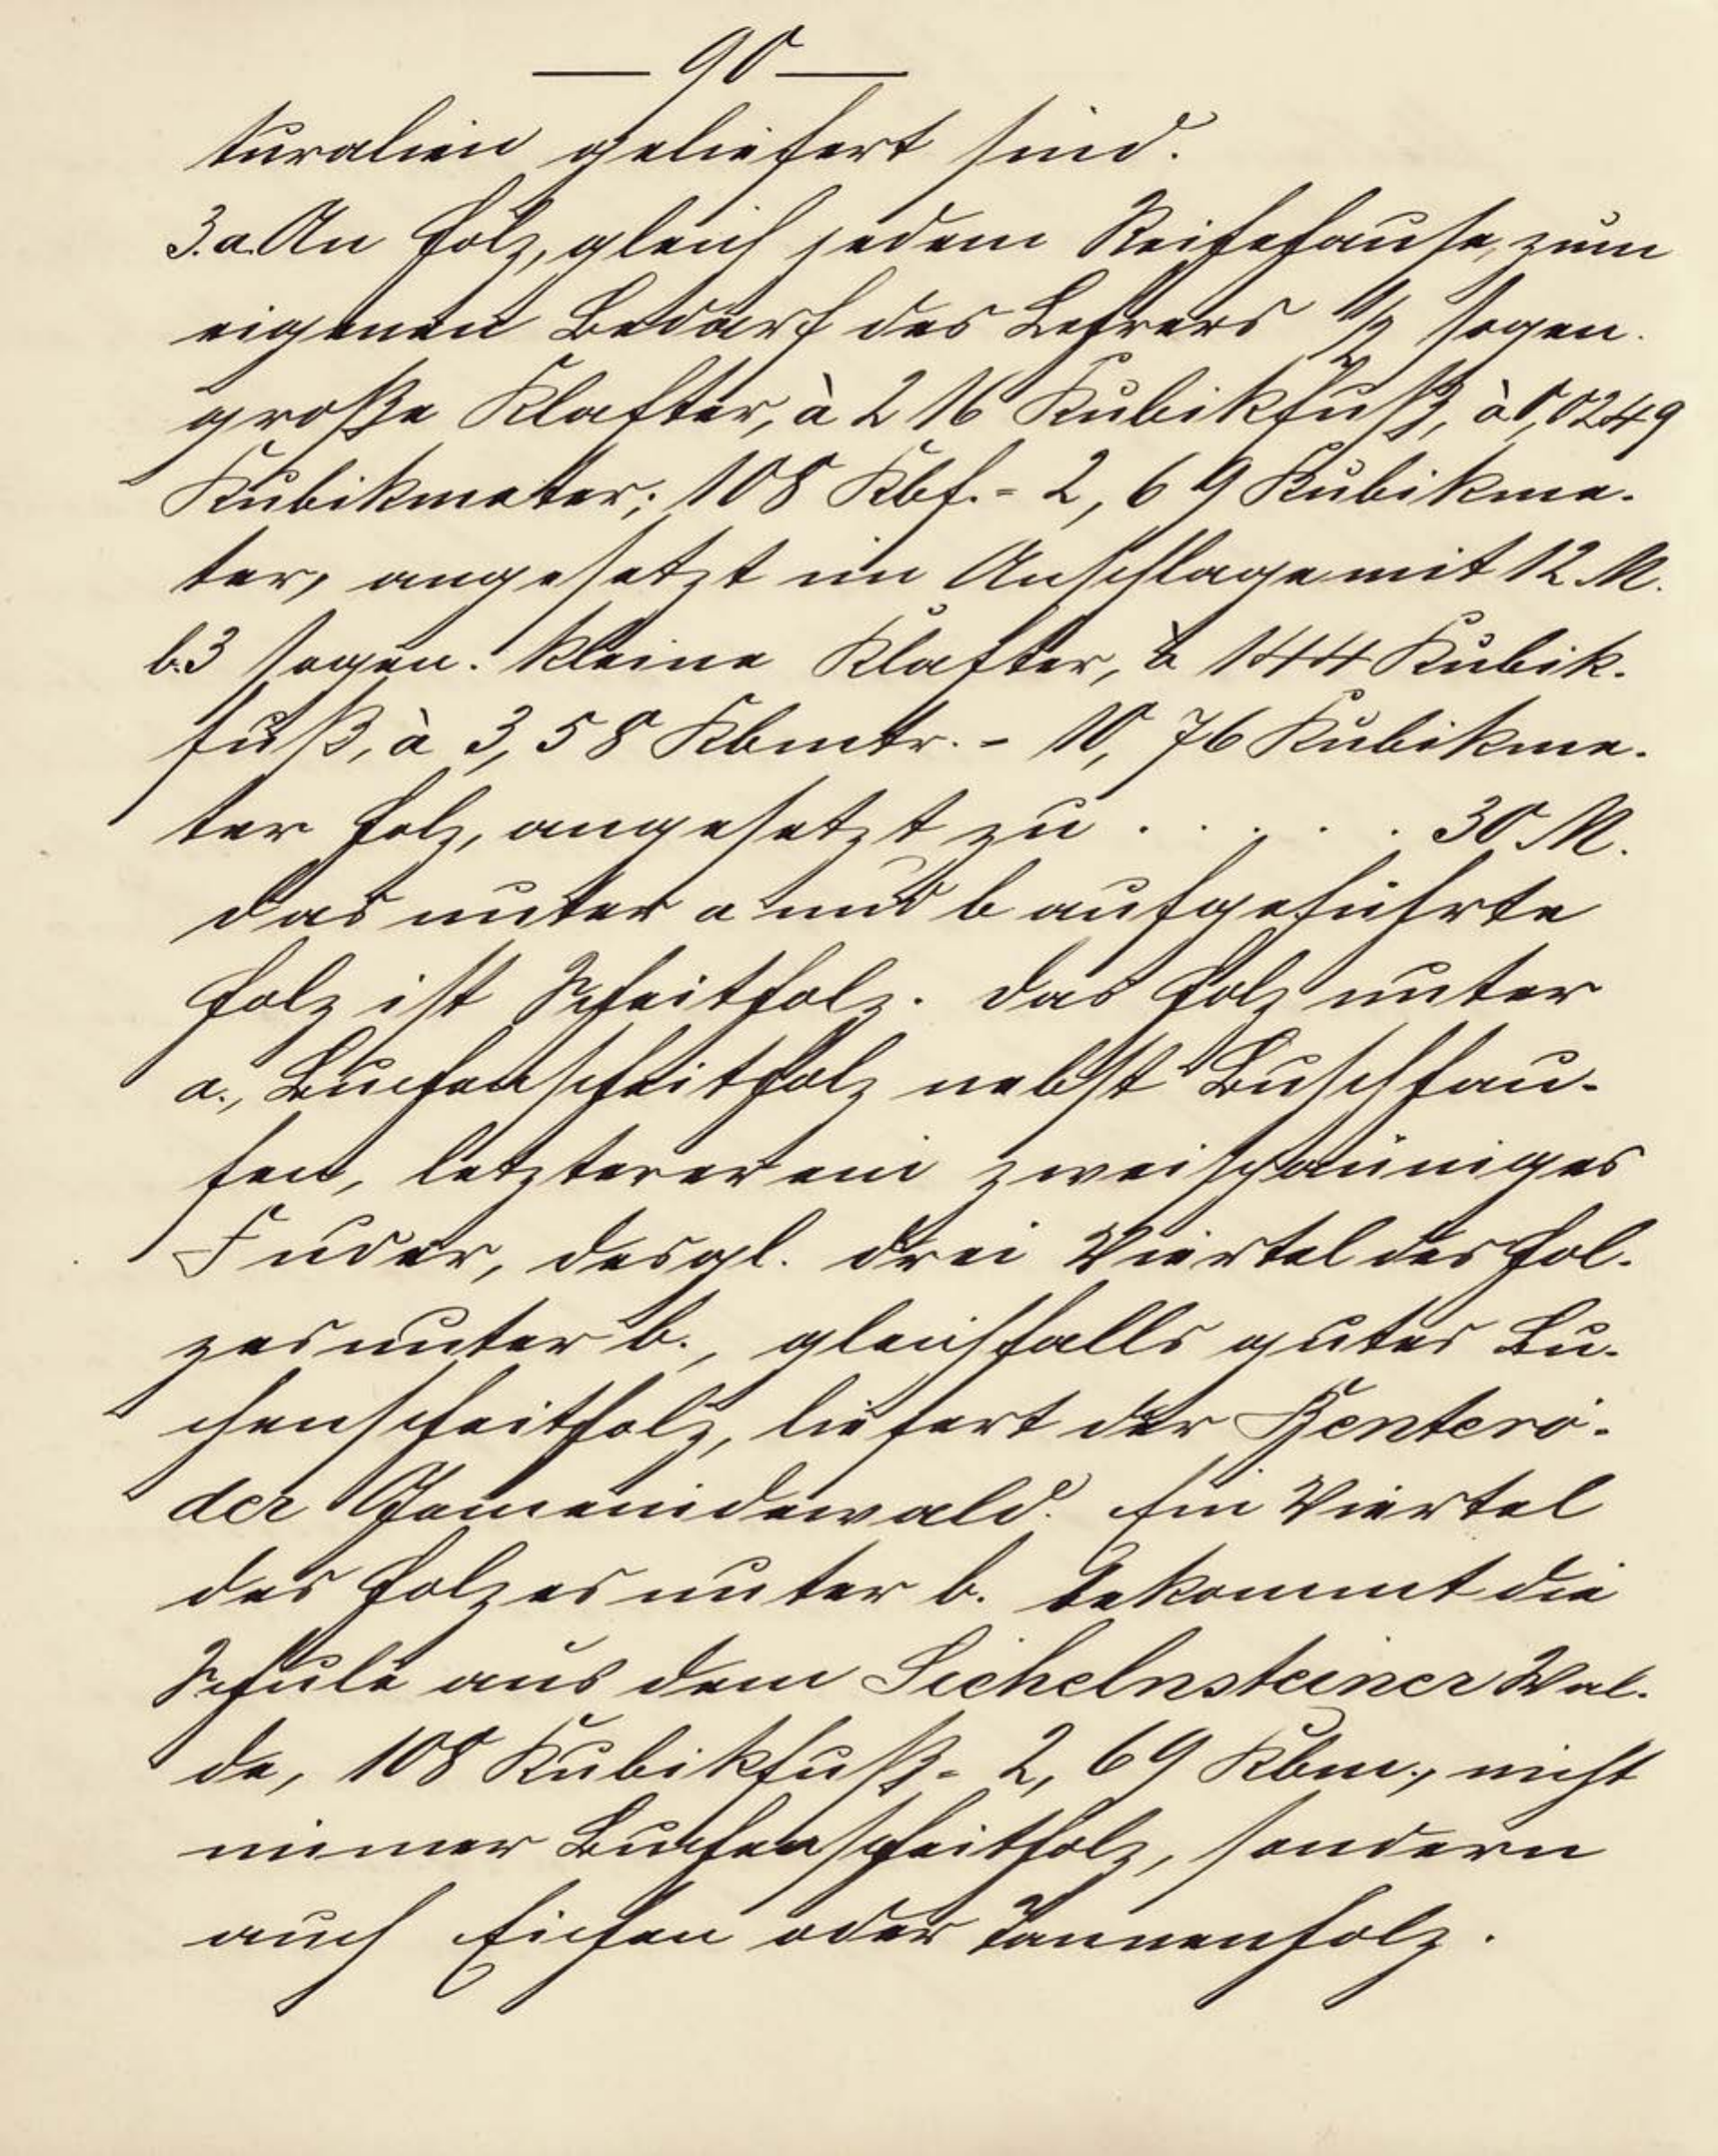 — 90 —
turalien geliefert sind.
3. a. An Holz, gleich jedem Reihehause, zum
eigenen Bedarf des Lehrers 1/2 sogen.
große Klafter, à 216 Kubikfuß, à 0,0249
Kubikmeter; 108 Kbf. = 2,69 Kubikme-
ter, angesetzt im Anschlage mit 12 M.
b. 3 sogen. kleine Klafter, à 144 Kubik-
fuß, à 3,58 Kbmtr. = 10,76 Kubikme-
ter Holz, angesetzt zu . . . . . 30 M.
Das unter a und b aufgeführte
Holz ist Scheitholz. Das Holz unter
a., Buchenscheitholz nebst Buschhau-
fen, letzterer ein zweispänniges
Fuder, desgl. drei Viertel des Hol-
zes unter b., gleichfalls gutes Bu-
chenscheitholz, liefert der Benterö-
der Gemeindewald. Ein Viertel
des Holzes unter b. bekommt die
Schule aus dem Sichelnsteiner Wal-
de, 108 Kubikfuß = 2,69 Kbm., nicht
immer Buchenscheitholz, sondern
auch Eichen oder Tannenholz.